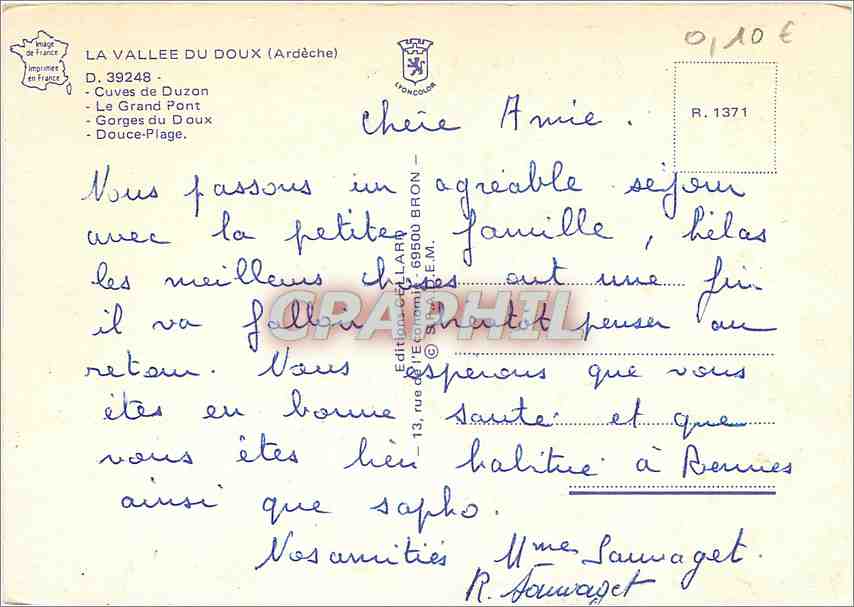 Image
de France
Imprimée
en France
LA VALLEE DU DOUX (Ardèche)
D. 39248 -
- Cuves de Duzon
- Le Grand Pont
- Gorges du Doux
- Douce-Plage.
LYONCOLOR
0,10 €
R. 1371
Editions CELLARD
- 13, rue de l'Economie - 69500 BRON -
© S.P.A.D.E.M.
Chère Amie.
Nous passons un agréable séjour
avec la petite famille, hélas
les meilleurs choses ont une fin
il va falloir bientôt penser au
retour. Nous espérons que vous
êtes en bonne santé et que
vous êtes bien habitué à Rennes
ainsi que sapho.
Nos amitiés Mme Sauvaget.
R. Sauvaget
CPARPHIL